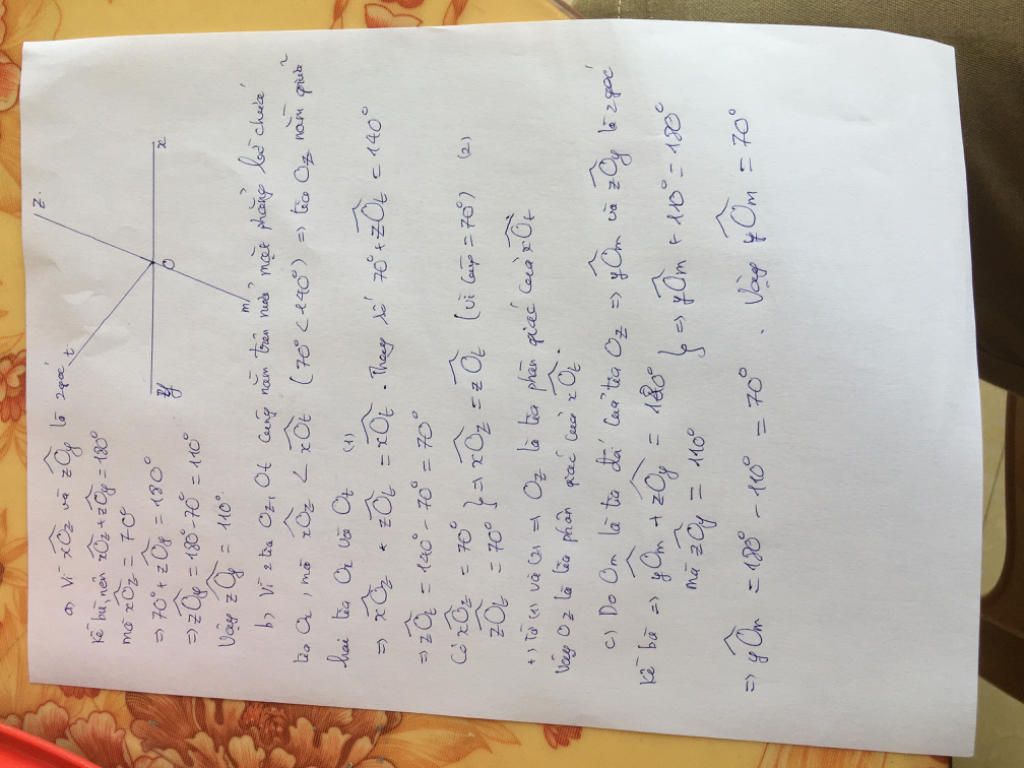 z
t
x
O
y
m
a) Vì xOz và zOy là 2 góc
kề bù, nên xOz + zOy = 180°
mà xOz = 70°
=> 70° + zOy = 180°
=> zOy = 180° - 70° = 110°
Vậy zOy = 110°
b) Vì 2 tia Oz, Ot cùng nằm trên nửa mặt phẳng bờ chứa
tia Ox, mà xOz < xOt (70° < 140°) => tia Oz nằm giữa
hai tia Ox và Ot (1)
=> xOz + zOt = xOt. Thay số 70° + zOt = 140°
=> zOt = 140° - 70° = 70°
Có xOz = 70°
zOt = 70° } => xOz = zOt (vì cùng = 70°) (2)
+) Từ (1) và (2) => Oz là tia phân giác của xOt
Vậy Oz là tia phân giác của xOt.
c) Do Om là tia đối của tia Oz => yOm và zOy là 2 góc
kề bù => yOm + zOy = 180°
mà zOy = 110° } => yOm + 110° = 180°
=> yOm = 180° - 110° = 70°. Vậy yOm = 70°